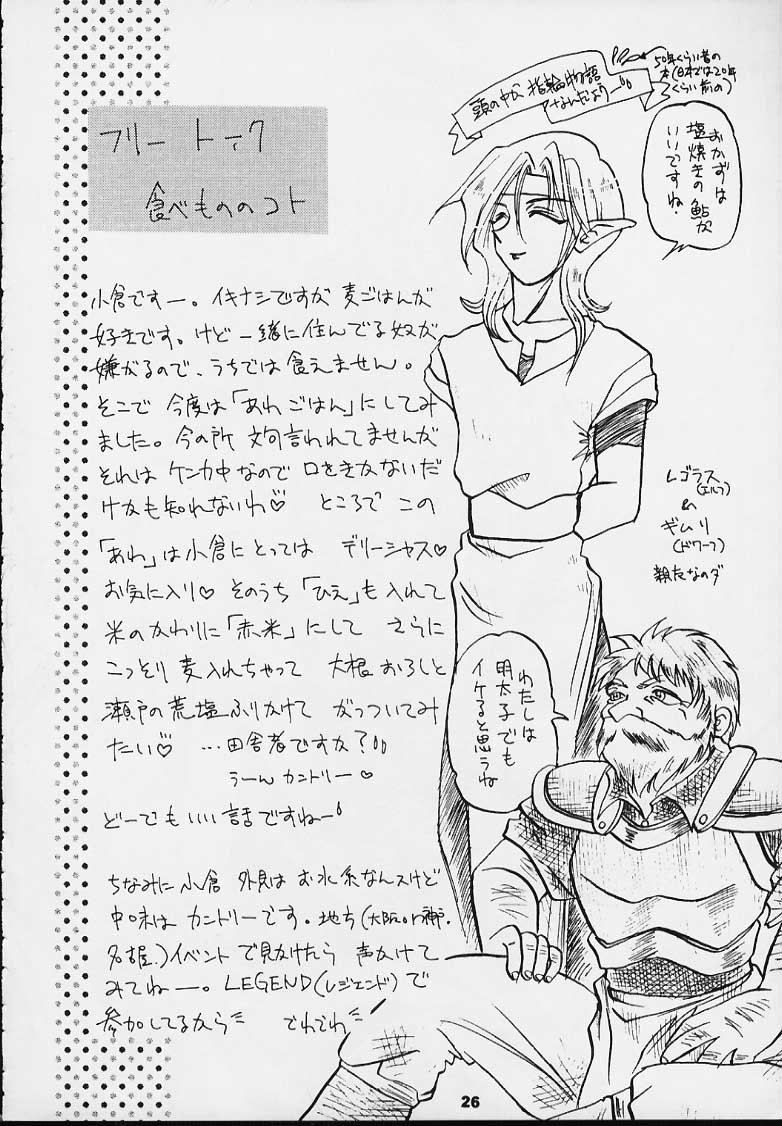 フリートーク
食べもののコト
小倉ですー。イキナシですが麦ごはんが
好きです。けど一緒に住んでる奴が
嫌がるので、うちでは食えません。
そこで今度は「あわごはん」にしてみ
ました。今の所文句言われてませんが
それはケンカ中なので口をきかないだ
けかも知れないわ♡ ところでこの
「あわ」は小倉にとっては デリーシャス♡
お気に入り♡ そのうち「ひえ」も入れて
米のかわりに「赤米」にして さらに
こっそり麦入れちゃって 大根おろしと
瀬戸の荒塩ふりかけて がっついてみ
たい♡ …田舎者ですか?
うーんカントリー♡
どーでもいい話ですねー
ちなみに小倉 外見はお水系なんスけど
中味はカントリーです。地方(大阪or神戸・
名古屋)イベントで見かけたら声かけて
みてねー。LEGEND(レジェンド)で
参加してるから でわでわ
頭の中が指輪物語
なんだよう
50年くらい昔の
本(日本では20年
くらい前の)
おかずは
塩焼きの鮎が
いいですね.
レゴラス
(エルフ)
&
ギムリ
(ドワーフ)
親友なのダ
わたしは
明太子でも
イケると思うね
26